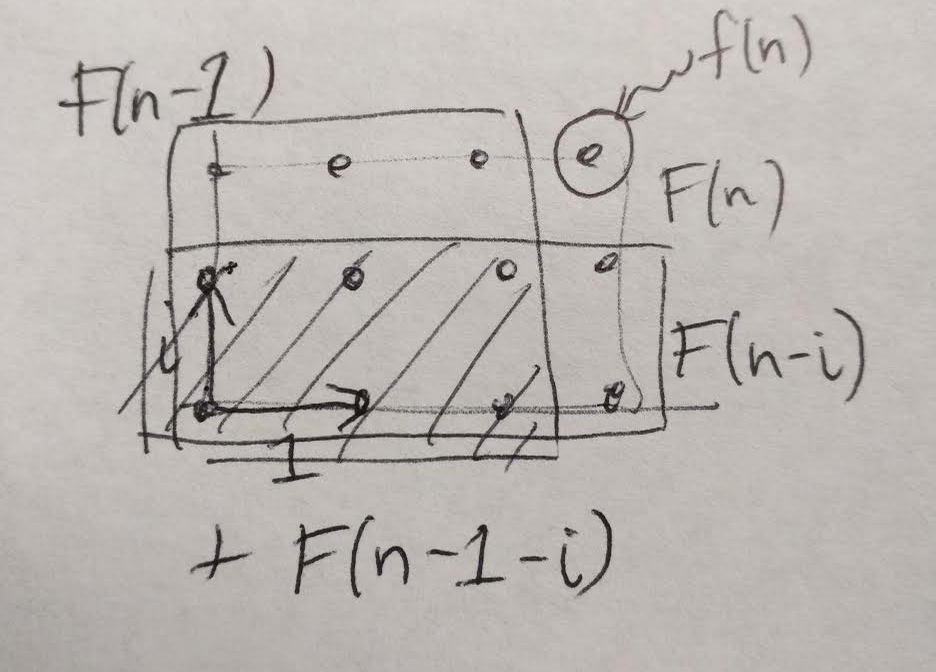 F(n-1)
f(n)
F(n)
i
F(n-i)
1
+ F(n-1-i)